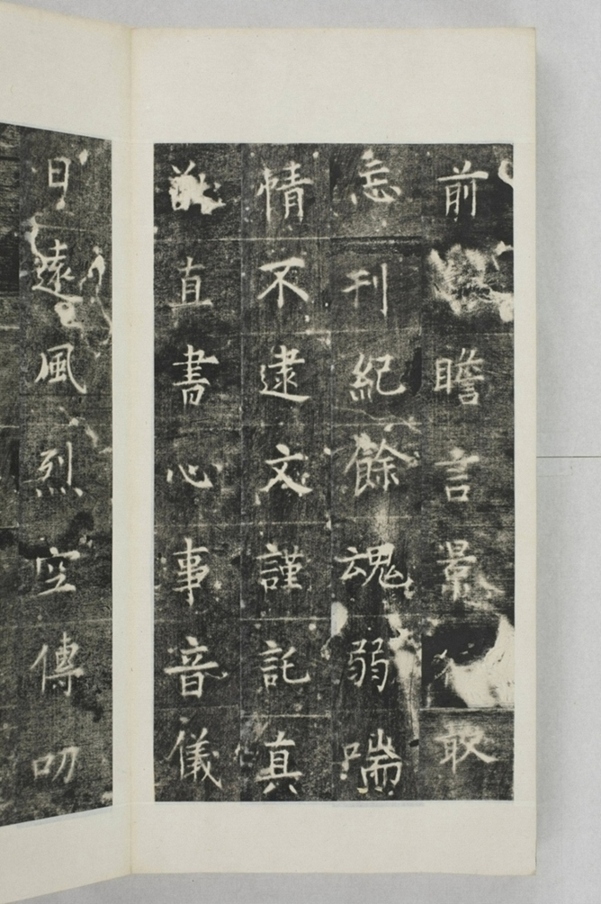 前瞻言景敢
忘刊紀餘魂弱喘
情不逮文謹託真
猷直書心事音儀
日遠風烈空傳叨